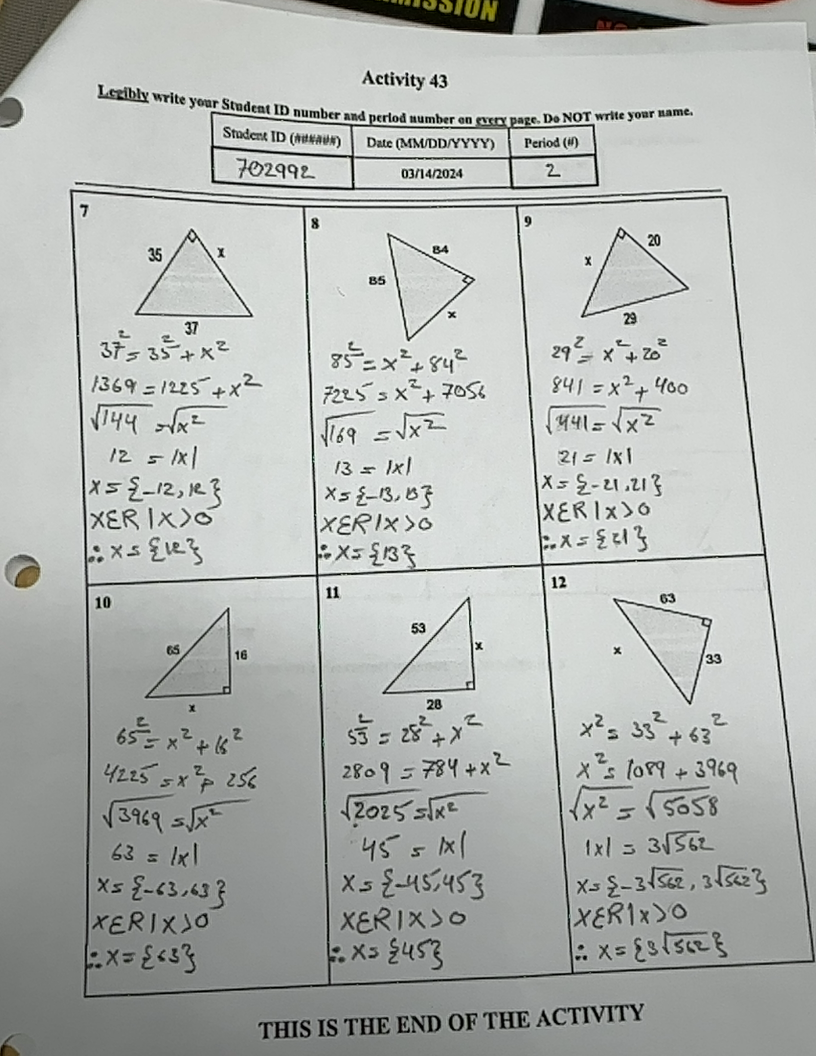 SSION
Activity 43
Legibly write your Student ID number and period number on every page. Do NOT write your name.
Student ID (######) Date (MM/DD/YYYY) Period (#)
702992 03/14/2024 2
7
35 x
37
37² = 35² + x²
1369 = 1225 + x²
√144 = √x²
12 = |x|
x = {-12, 12}
XεR | X > 0
∴ x = {12}
8
84
85
x
85² = x² + 84²
7225 = x² + 7056
√169 = √x²
13 = |x|
x = {-13, 13}
XεR | X > 0
∴ x = {13}
9
20
x
29
29² = x² + 20²
841 = x² + 400
√441 = √x²
21 = |x|
x = {-21, 21}
XεR | X > 0
∴ x = {21}
10
65 16
x
65² = x² + 16²
4225 = x² + 256
√3969 = √x²
63 = |x|
x = {-63, 63}
XεR | X > 0
∴ x = {63}
11
53
x
28
53² = 28² + x²
2809 = 784 + x²
√2025 = √x²
45 = |x|
x = {-45, 45}
XεR | X > 0
∴ x = {45}
12
63
x 33
x² = 33² + 63²
x² = 1089 + 3969
√x² = √5058
|x| = 3√562
x = {-3√562, 3√562}
XεR | X > 0
∴ x = {3√562}
THIS IS THE END OF THE ACTIVITY